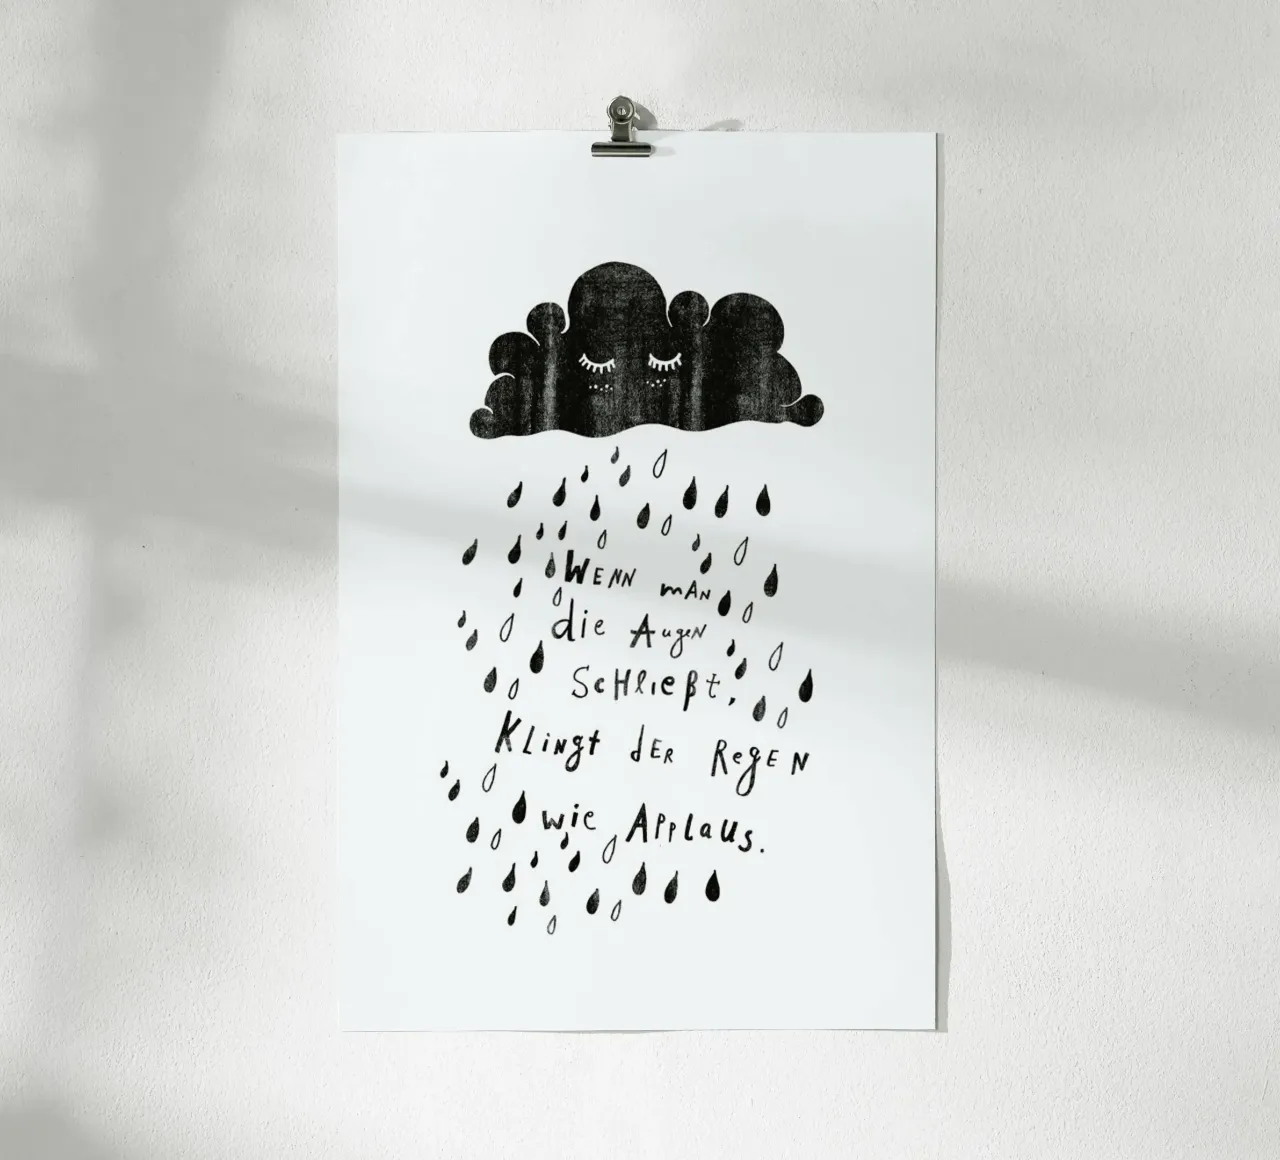 Wenn man
die Augen
Schließt,
Klingt der Regen
wie Applaus.